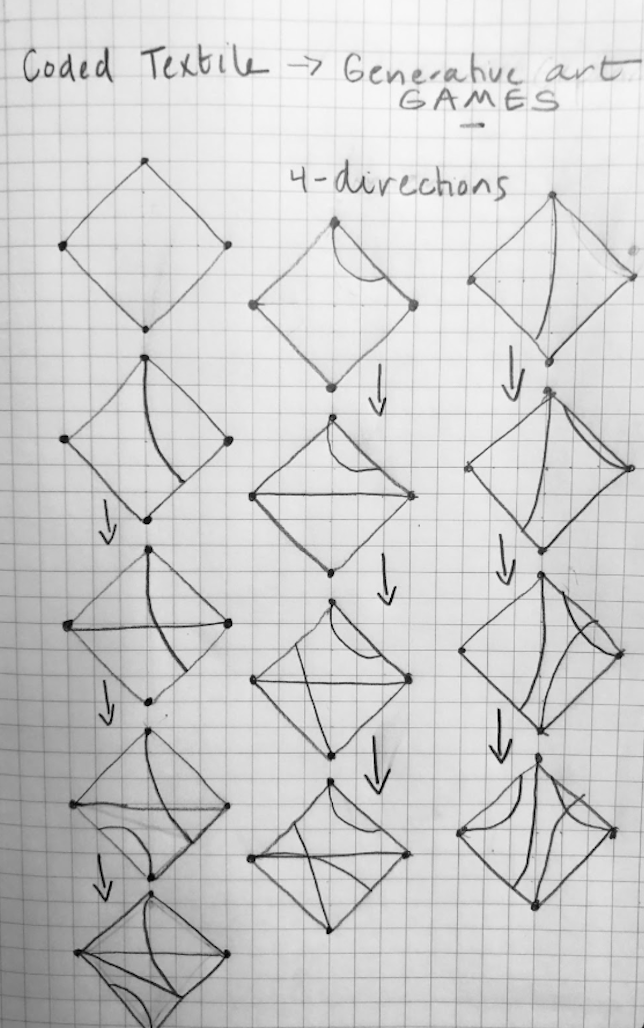 Coded Textile → Generative art
GAMES
4-directions